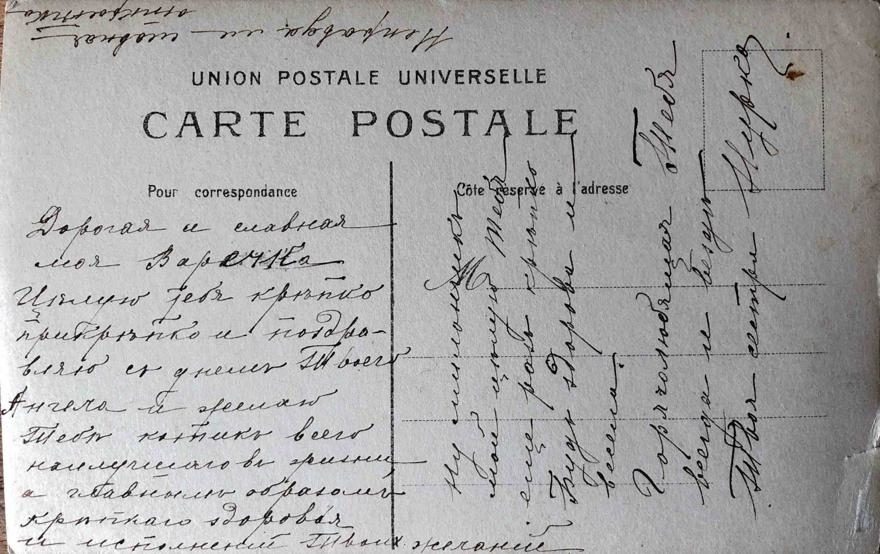 Неправда ли славная
открытка
UNION POSTALE UNIVERSELLE
CARTE POSTALE
Pour correspondance
Côté réservé à l'adresse
Дорогая и славная
моя Варечка
Цѣлую тебя крѣпко
прикрѣпко и поздра-
вляю съ днемъ Твоего
Ангела и желаю
Тебѣ котикъ всего
наилучшаго въ жизни,
а главнымъ образомъ
крѣпкаго здоровья
и исполненій Твоихъ желаній
Ну
мой цѣлую Тебя
еще разъ крѣпко
Будь здорова и
весела.
Горячолюбящая Тебя
всегда и вездѣ
Твоя сестра Нурка